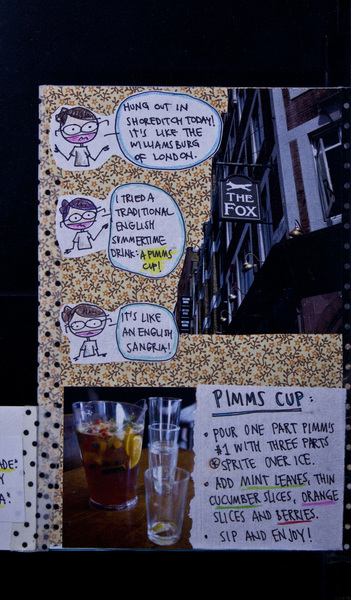 HUNG OUT IN
SHOREDITCH TODAY!
IT'S LIKE THE
WILLIAMSBURG
OF LONDON.
THE
FOX
I TRIED A
TRADITIONAL
ENGLISH
SUMMERTIME
DRINK: A PIMMS
CUP!
IT'S LIKE
AN ENGLISH
SANGRIA!
PIMMS CUP:
• POUR ONE PART PIMM'S
#1 WITH THREE PARTS
SPRITE OVER ICE.
• ADD MINT LEAVES, THIN
CUCUMBER SLICES, ORANGE
SLICES AND BERRIES.
• SIP AND ENJOY!
ADE:
Y
A!